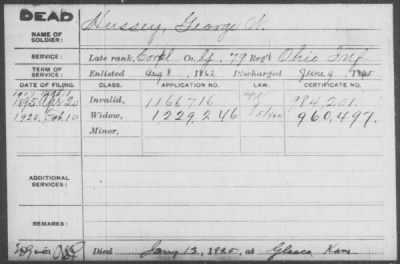 DEAD
NAME OF SOLDIER: Hussey, George
SERVICE: Late rank, Corpl Co. 79 Reg't Ohio Inf
TERM OF SERVICE: Enlisted Aug 8, 1862 Discharged June 9, 1865
DATE OF FILING. CLASS. APPLICATION NO. LAW. CERTIFICATE NO.
1895 Apr 20 Invalid, 1166716 984,201.
1920, Feb 10 Widow, 1229246 960,497.
Minor,
ADDITIONAL SERVICES:
REMARKS:
Died Jany 12, 1920, at Kans